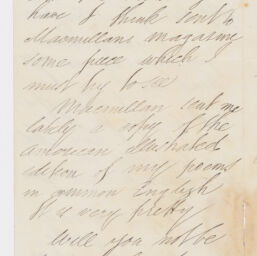 have I think sent to
Macmillans magazine
some piece which I
must try to see
Macmillan sent me
lately a copy of the
American illustrated
edition of my poems
in common English
It is very pretty
Will you not be